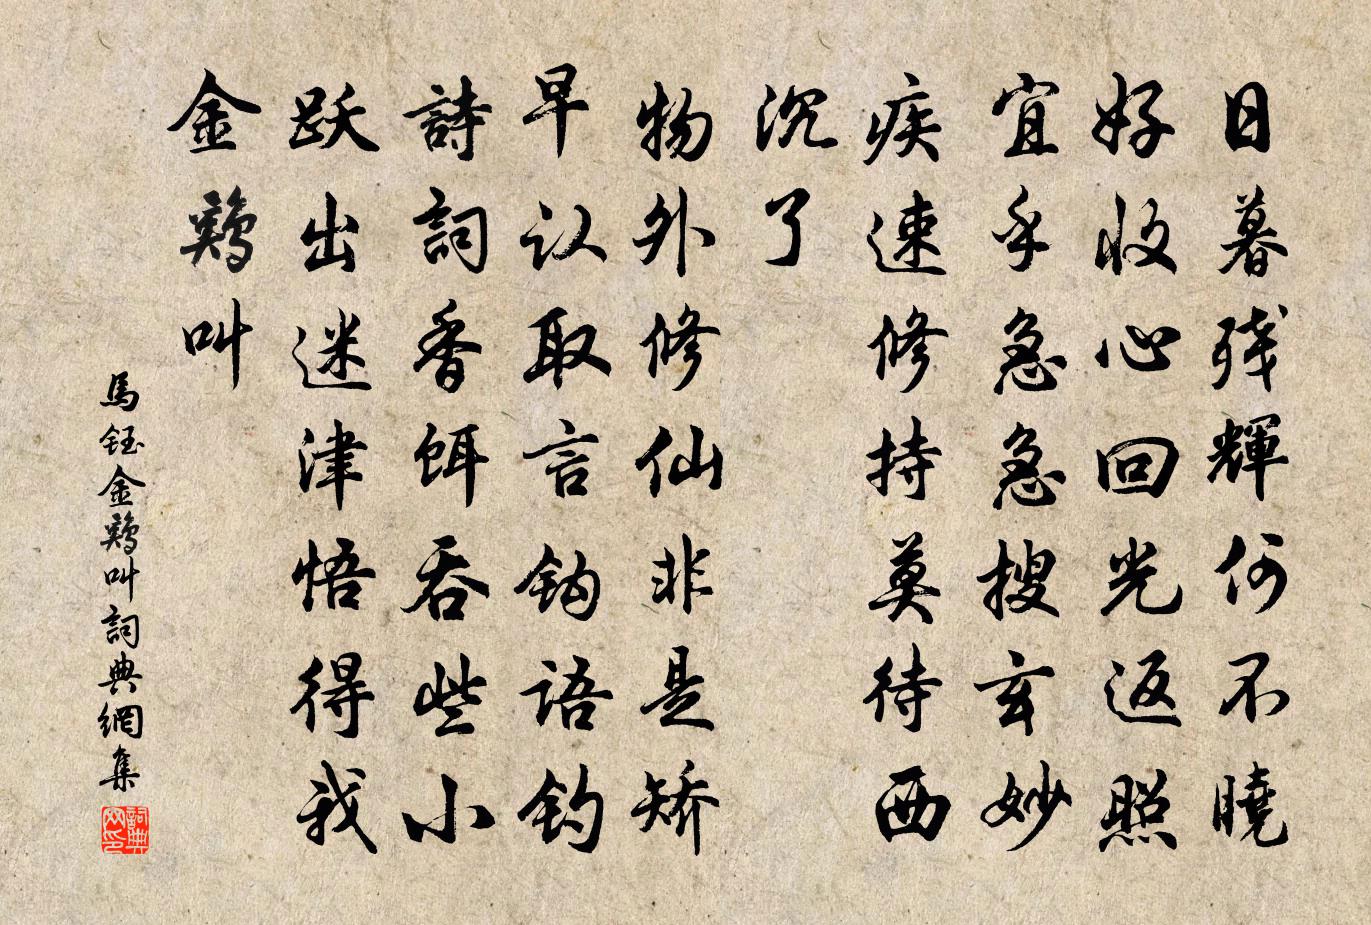 日暮残輝何不曉
好收心回光返照
宜乎急急搜玄妙
疾速修持莫待西
沉了
物外修仙非是矫
早认取言钩語钓
詩詞香餌吞些小
跃出迷津悟得我
金鶏叫
馬鈺金鶏叫詞典網集
詞典網印